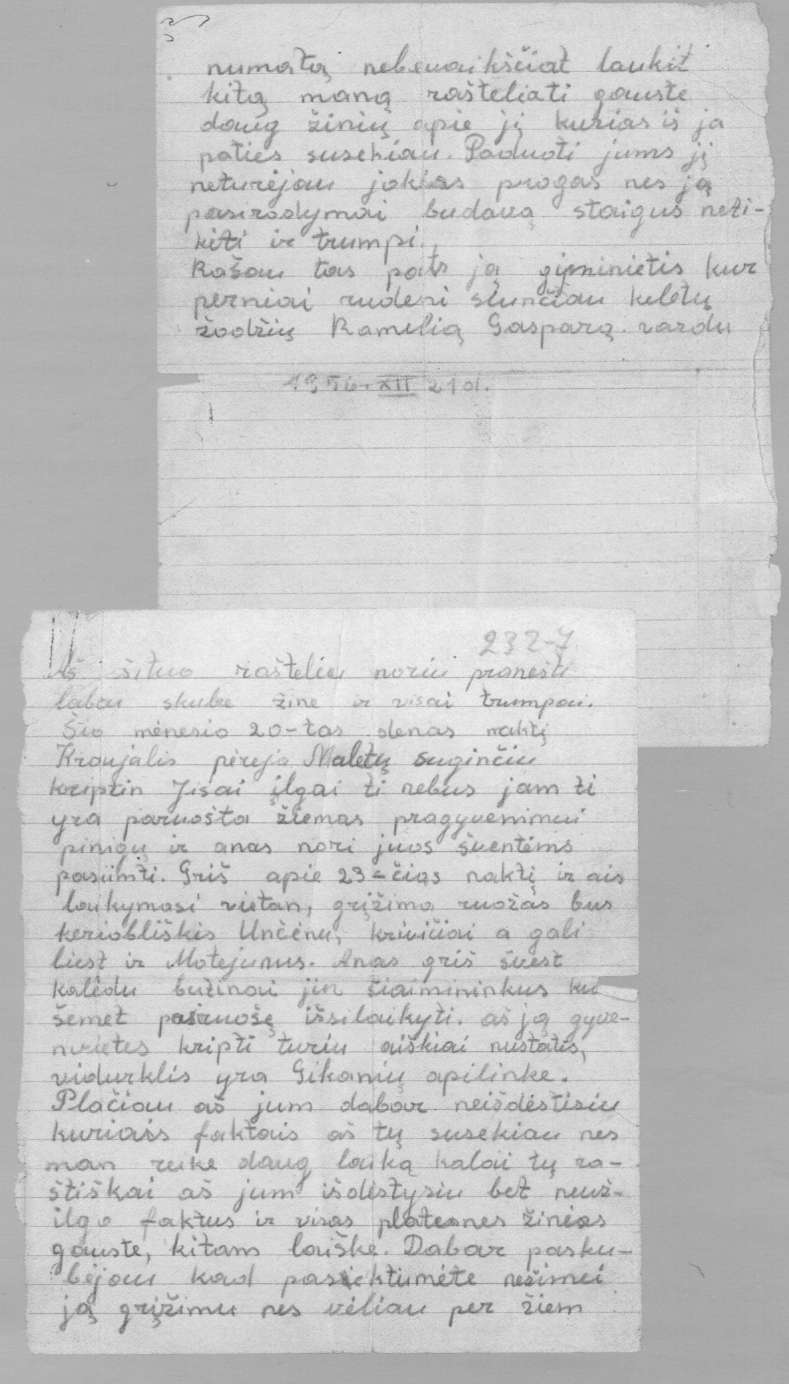 numatą nebevaikščiat laukit
kitą maną rašteliati gauste
daug žinių apie jį kurias iš ja
paties susekiau. Paduoti jums jį
neturėjau jokias progas nes ją
pasirodymai budavą staigus neti-
kiti ir trumpi.
Rašau tas pats ją giminietis kur
perniai rudeni siunčiau keletų
žodžių Ramelią Gasparą vardu
1956. XII 21d.
232-7
Aš šituo rašteliu noriu pranešti
labau skube žine ir visai trumpai.
Šio mėnesio 20-tas denas naktį
Kraujalis perėja Maletų suginčiu
kriptin Jisai ilgai ti nebus jam ti
yra paruošta žiemas pragyvenimui
pinigų ir anas nori juos šventėms
pasiimti. Griš apie 23-čias naktį ir ais
laikymosi vietan, grįžimo ruožas bus
keriobliškis Unčėnu, krivičiai a gali
liest ir Motejunus. Anas griš švest
kalėdu butinai jin šiaimininkus ku
šemet pasiruošę išsilaikyti. aš ją gyve-
nvietes kripti turiu aiškiai nustatis,
vidurklis yra Gikanių apilinke.
Plačiau aš jum dabar neišdėstisiu
kuriais faktais aš tų susekiau nes
man reike daug lauką kalai tų ra-
štiškai aš jum išdėstysiu bet neuž-
ilgo faktus ir visas platesnes žinias
gauste, kitam laiške. Dabar pasku-
bėjau kad pasiektumėte nežimei
ją grįžimu nes vėliau per žiem